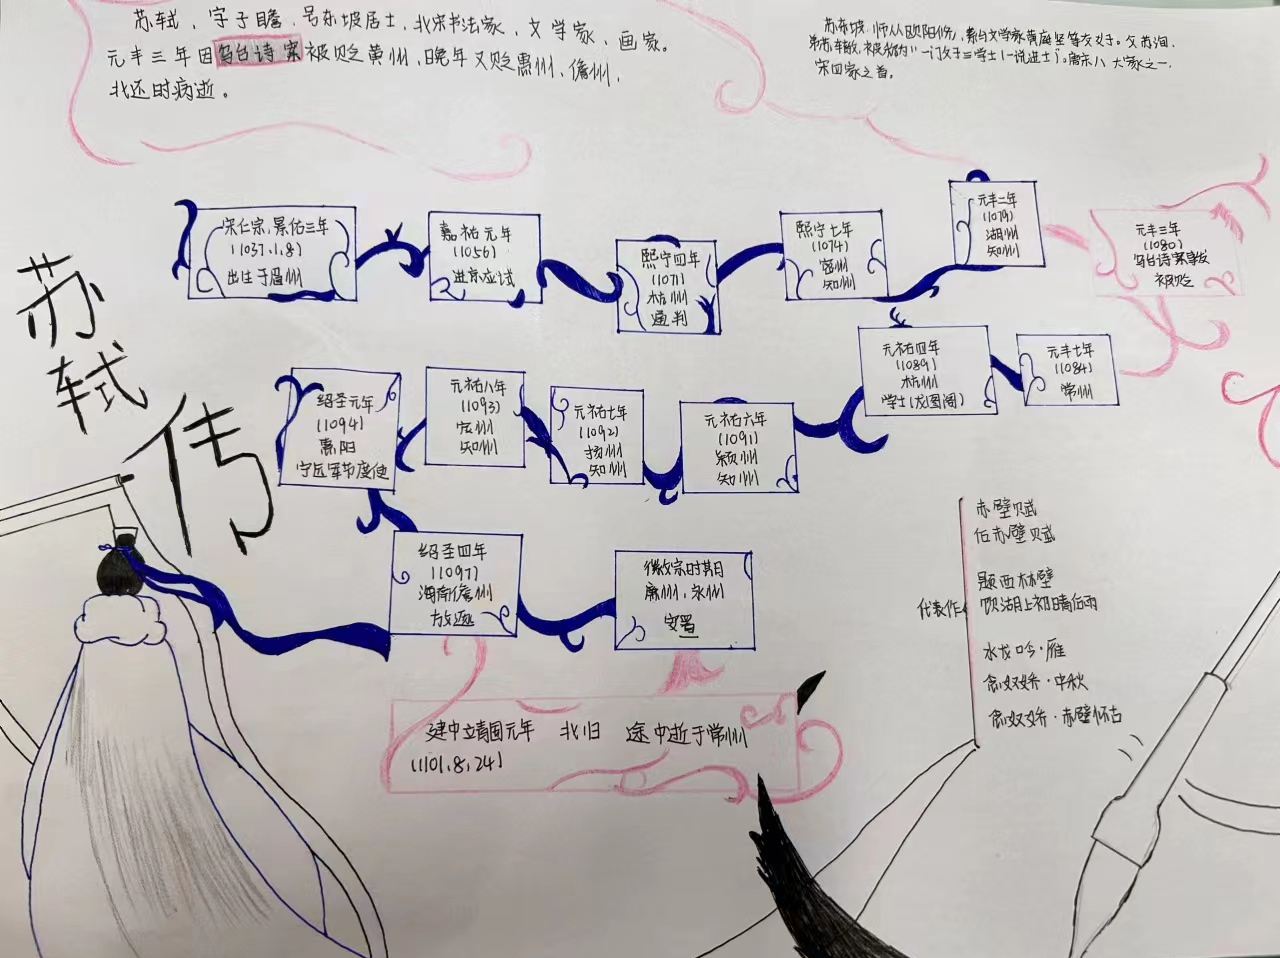 苏轼，字子瞻，号东坡居士，北宋书法家，文学家，画家。
元丰三年因乌台诗案被贬黄州，晚年又贬惠州、儋州，
北还时病逝。
苏东坡，师从欧阳修，
宋四家之首。
苏轼传
宋仁宗，景佑三年
(1037.1.8)
出生于眉州
嘉祐元年
(1056)
进京应试
熙宁四年
(1071)
杭州
通判
熙宁七年
(1074)
密州
知州
元丰二年
(1079)
湖州
知州
元丰三年
(1080)
乌台诗案事发
被贬
元丰七年
(1084)
常州
元祐四年
(1089)
杭州
学士(龙图阁)
元祐六年
(1091)
颍州
知州
元祐七年
(1092)
扬州
知州
元祐八年
(1093)
定州
知州
绍圣元年
(1094)
惠阳
宁远军节度使
绍圣四年
(1097)
海南儋州
放逐
徽宗时期
廉州，永州
安置
建中立靖国元年 北归 途中逝于常州
(1101,8,24)
代表作
赤壁赋
后赤壁赋
题西林壁
饮湖上初晴后雨
水龙吟·雁
念奴娇·中秋
念奴娇·赤壁怀古